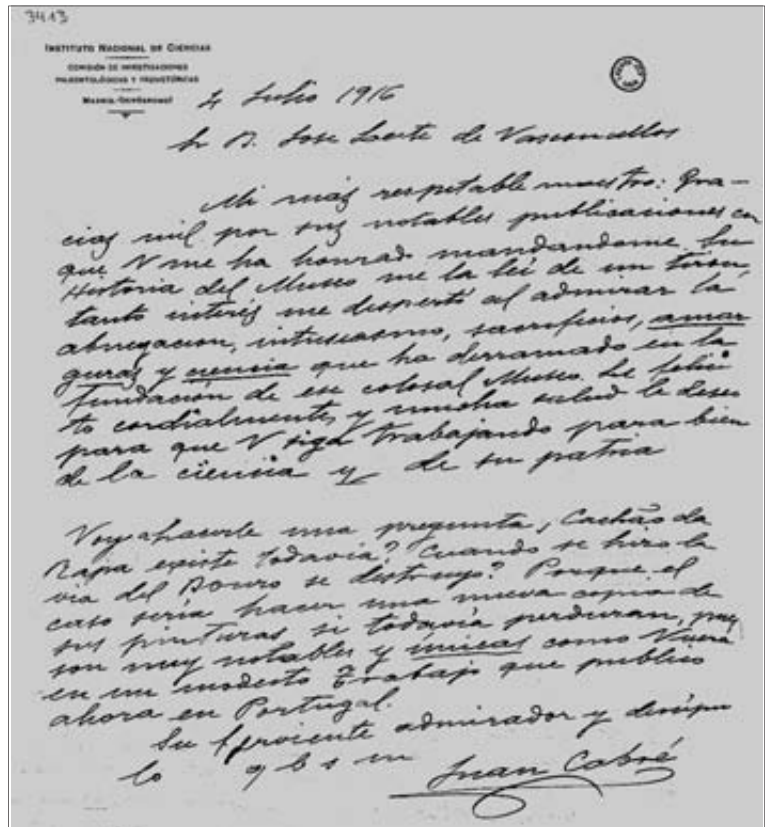 3413
INSTITUTO NACIONAL DE CIENCIAS
COMISIÓN DE INVESTIGACIONES
PALEONTOLÓGICAS Y PREHISTÓRICAS
MADRID.-(HIPÓDROMO)
4 Julio 1916
Sr D. Jose Leite de Vasconcellos
Mi más respetable maestro: Gra-
cias mil por sus notables publicaciones con
que V me ha honrado mandandome. Su
Historia del Museo me la leí de un tiron,
tanto interés me despertó al admirar la
abnegacion, intusiasmo, sacrificios, amar
guras y ciencia que ha derramado en la
fundación de ese colosal Museo. Le felici
to cordialmente y mucha salud le deseo
para que V siga trabajando para bien
de la ciencia y de su patria
Voy a hacerle una pregunta, Cachão da
Rapa existe todavia? Cuando se hizo la
via del Douro se destruyó? Porque el
caso sería hacer una nueva copia de
sus pinturas si todavía perduran, pues
son muy notables y únicas como V vera
en un modesto trabajo que publico
ahora en Portugal.
Su ferviente admirador y discipu
lo q b s m
Juan Cabré